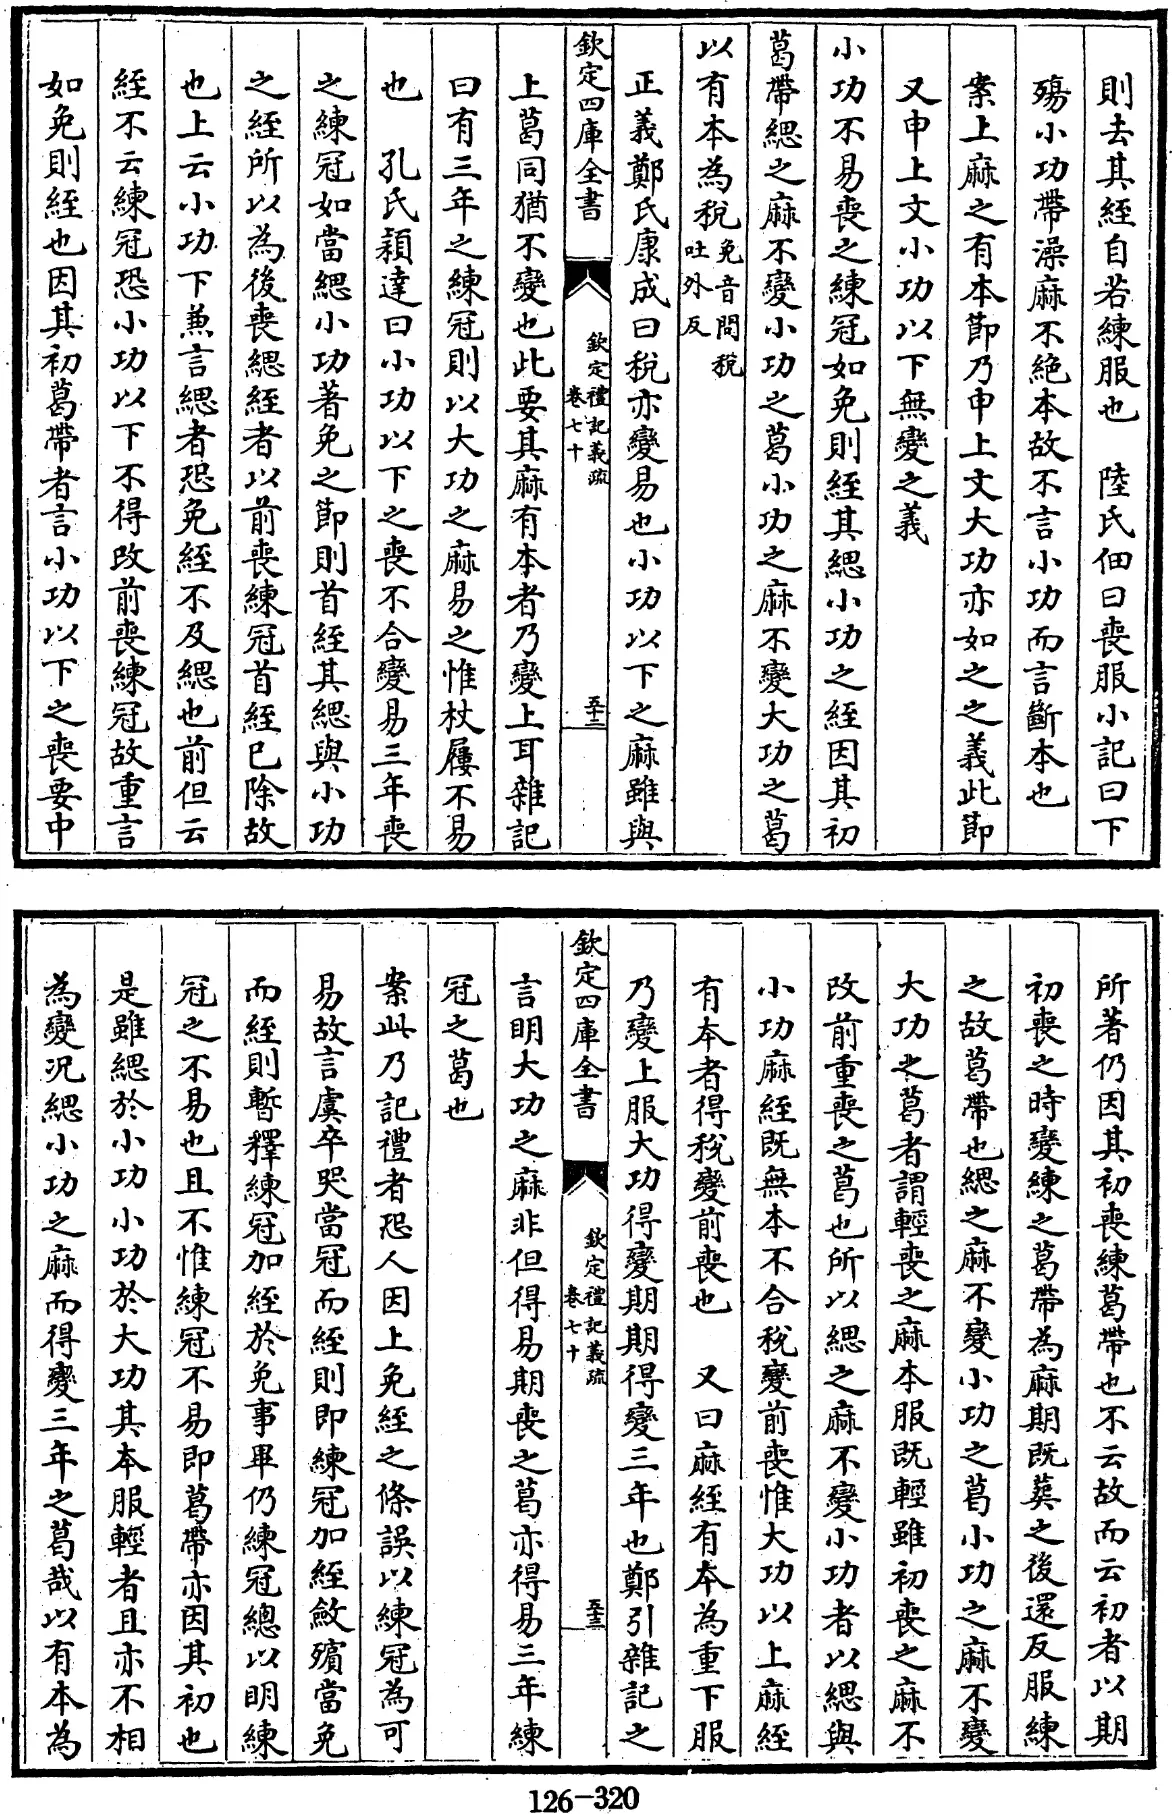 則去其絰自若練服也　陸氏佃曰喪服小記曰下
殤小功帶澡麻不絶本故不言小功而言斷本也
案上麻之有本節乃申上文大功亦如之之義此節
又申上文小功以下無變之義
小功不易喪之練冠如免則絰其緦小功之絰因其初
葛帶緦之麻不變小功之葛小功之麻不變大功之葛
以有本為稅免音問稅吐外反
正義鄭氏康成曰稅亦變易也小功以下之麻雖與
欽定四庫全書　欽定禮記義疏卷七十　五十三
上葛同猶不變也此要其麻有本者乃變上耳雜記
曰有三年之練冠則以大功之麻易之惟杖屨不易
也　孔氏穎達曰小功以下之喪不合變易三年喪
之練冠如當緦小功著免之節則首絰其緦與小功
之絰所以為後喪緦絰者以前喪練冠首絰已除故
也上云小功下兼言緦者恐免絰不及緦也前但云
絰不云練冠恐小功以下不得改前喪練冠故重言
如免則絰也因其初葛帶者言小功以下之喪要中
所著仍因其初喪練葛帶也不云故而云初者以期
初喪之時變練之葛帶為麻期既葬之後還反服練
之故葛帶也緦之麻不變小功之葛小功之麻不變
大功之葛者謂輕喪之麻本服既輕雖初喪之麻不
改前重喪之葛也所以緦之麻不變小功者以緦與
小功麻絰既無本不合稅變前喪惟大功以上麻絰
有本者得稅變前喪也　又曰麻絰有本為重下服
乃變上服大功得變期期得變三年也鄭引雜記之
欽定四庫全書　欽定禮記義疏卷七十　五十三
言明大功之麻非但得易期喪之葛亦得易三年練
冠之葛也
案此乃記禮者恐人因上免絰之條誤以練冠為可
易故言虞卒哭當冠而絰則即練冠加絰斂殯當免
而絰則暫釋練冠加絰於免事畢仍練冠總以明練
冠之不易也且不惟練冠不易即葛帶亦因其初也
是雖緦於小功小功於大功其本服輕者且亦不相
為變況緦小功之麻而得變三年之葛哉以有本為
126-320